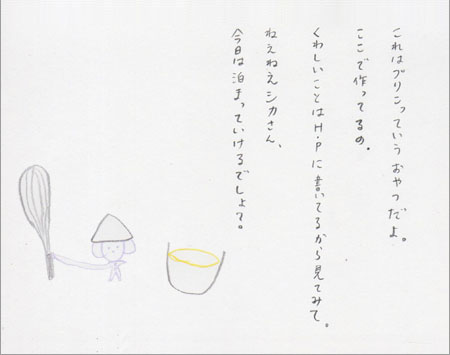 これはプリンっていうおやつだよ。
ここで作ってるの。
くわしいことはH.Pに書いてるから見てみて。
ねえねえシカさん、
今日は泊まっていけるでしょ？。